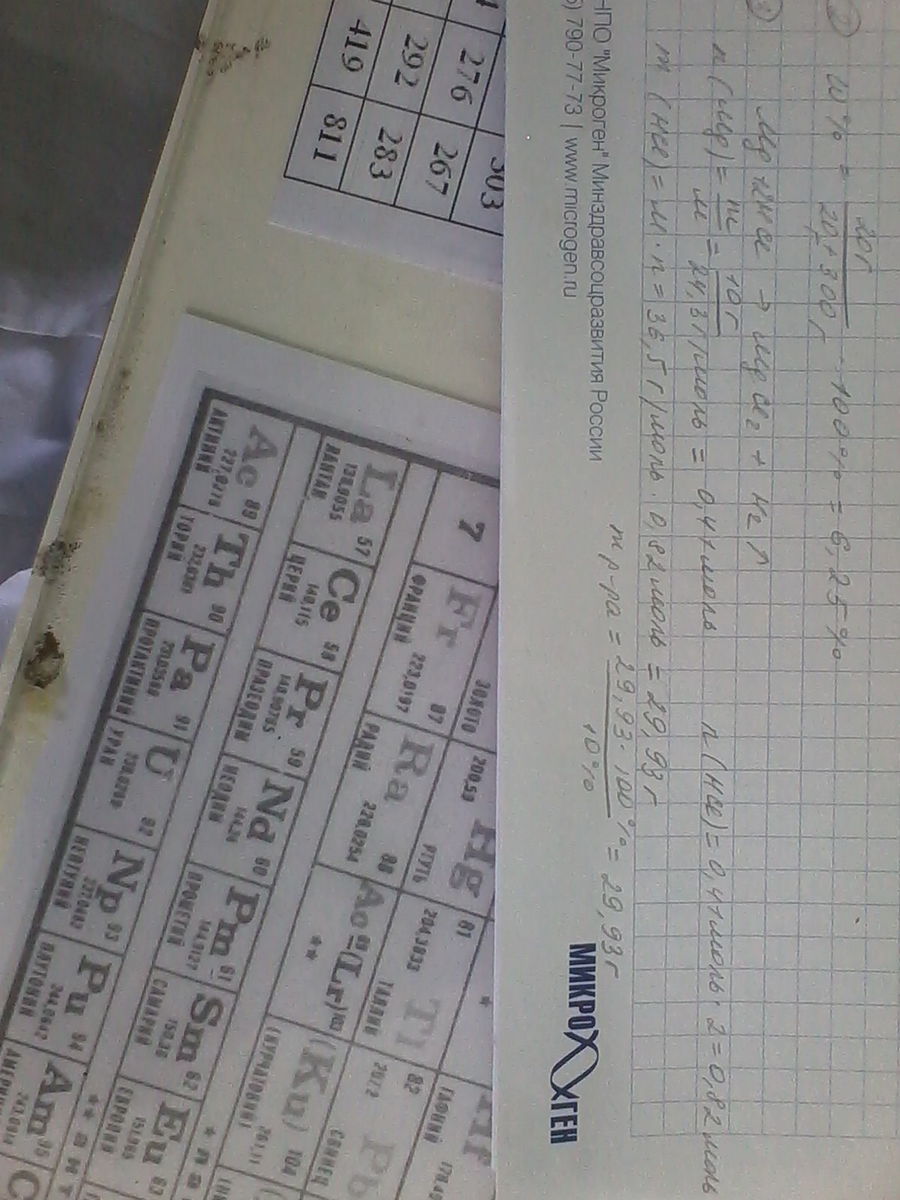 2) ω% = 20г / 20г + 300г · 100% = 6,25%
3) Mg + 2HCl → MgCl2 + H2↑
n(Mg) = m / M = 10г / 24,3г/моль = 0,41моль n(HCl) = 0,41моль · 2 = 0,82 моль
m(HCl) = M · n = 36,5 г/моль · 0,82 моль = 29,93 г
m р-ра = 29,93 · 100% / 10% = 29,93г
НПО "Микроген" Минздравсоцразвития России
) 790-77-73 | www.microgen.ru
МИКРОГЕН
303
276 267
292 283
419 811
Hg
200,59
РТУТЬ
81
204,3833
Tl
ТАЛЛИЙ
82
207,2
Pb
СВИНЕЦ
ЗОЛОТО
ГАФНИЙ
7
Fr 87
223,0197
ФРАНЦИЙ
Ra 88
226,0254
РАДИЙ
Ac (Lr)
**
(Ku) 104
(КУРЧАТОВИЙ)
La 57
138,9055
ЛАНТАН
Ce 58
140,115
ЦЕРИЙ
Pr 59
140,90765
ПРАЗЕОДИМ
Nd 60
144,24
НЕОДИМ
Pm 61
144,9127
ПРОМЕТИЙ
Sm 62
150,36
САМАРИЙ
Eu 63
151,965
ЕВРОПИЙ
Ac 89
227,0278
АКТИНИЙ
Th 90
232,0381
ТОРИЙ
Pa 91
ПРОТАКТИНИЙ
U 92
УРАН
Np 93
237,0482
НЕПТУНИЙ
Pu 94
244,0642
ПЛУТОНИЙ
Am 95
243,0614